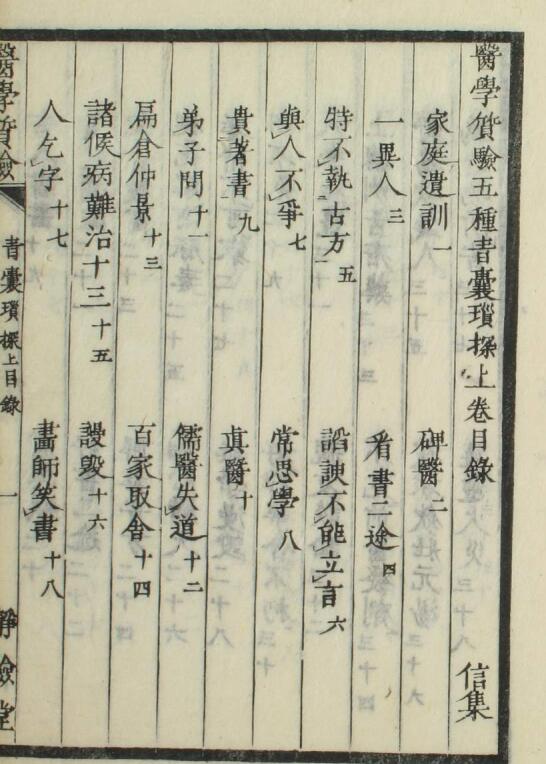 醫學質驗五種青囊瑣探上卷目錄 信集
家庭遺訓 一 碑醫 二
一異人 三 看書二途 四
特不執古方 五 謟諛不能立言 六
與人不爭 七 常思學 八
貴著書 九 眞醫 十
弟子問 十一 儒醫失道 十二
扁倉仲景 十三 百家取舍 十四
諸侯病難治十三 十五 謾毀 十六
人乞字 十七 畵師笑書 十八
醫學質驗 青囊瑣探上目錄 一 靜儉堂